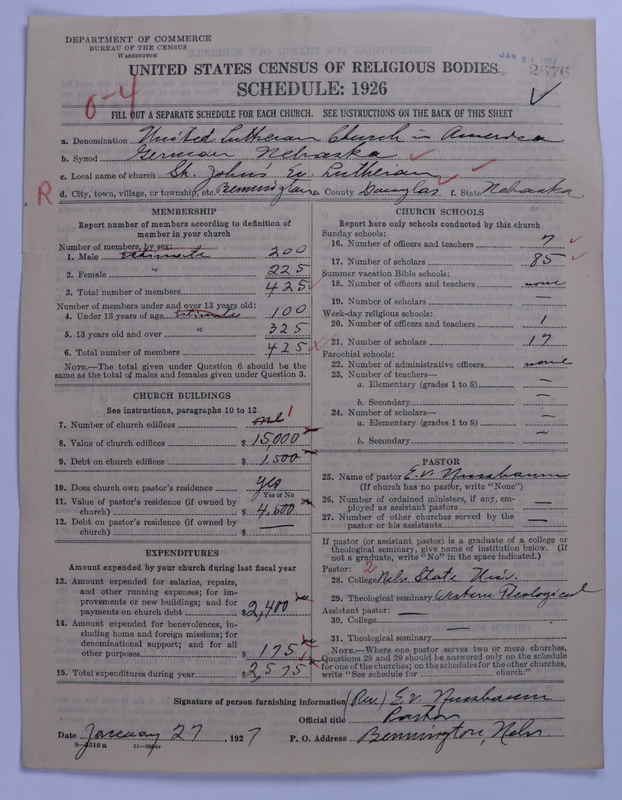 DEPARTMENT OF COMMERCE
BUREAU OF THE CENSUS
WASHINGTON
JAN 31 1927
2676
UNITED STATES CENSUS OF RELIGIOUS BODIES
SCHEDULE: 1926
0-4
FILL OUT A SEPARATE SCHEDULE FOR EACH CHURCH. SEE INSTRUCTIONS ON THE BACK OF THIS SHEET
a. Denomination United Lutheran Church in America
b. Synod German Nebraska
c. Local name of church St. John's Ev. Lutheran
R
d. City, town, village, or township, etc. Bennington e. County Douglas f. State Nebraska
MEMBERSHIP
Report number of members according to definition of
member in your church
Number of members, by sex:
1. Male estimate 200
2. Female " 225
3. Total number of members 425
Number of members under and over 13 years old:
4. Under 13 years of age Estimates 100
5. 13 years old and over " 325
6. Total number of members 425
NOTE.—The total given under Question 6 should be
same as the total of males and females given under Question 3.
CHURCH BUILDINGS
See instructions, paragraphs 10 to 12
7. Number of church edifices one 1
8. Value of church edifices $ 15,000
9. Debt on church edifices $ 1,500
10. Does church own pastor's residence yes
Yes or No
11. Value of pastor's residence (if owned by
church) $ 4,500
12. Debt on pastor's residence (if owned by
church) $ —
EXPENDITURES
Amount expended by your church during last fiscal year
13. Amount expended for salaries, repairs,
and other running expenses; for im-
provements or new buildings; and for
payments on church debt $ 2,400
14. Amount expended for benevolences, in-
cluding home and foreign missions; for
denominational support; and for all
other purposes $ 175
15. Total expenditures during year $ 2,575
CHURCH SCHOOLS
Report here only schools conducted by this church
Sunday schools:
16. Number of officers and teachers 7
17. Number of scholars 85
Summer vacation Bible schools:
18. Number of officers and teachers none
19. Number of scholars —
Week-day religious schools:
20. Number of officers and teachers 1
21. Number of scholars 17
Parochial schools:
22. Number of administrative officers none
23. Number of teachers—
a. Elementary (grades 1 to 8) —
b. Secondary —
24. Number of scholars—
a. Elementary (grades 1 to 8) —
b. Secondary —
PASTOR
25. Name of pastor E. v. Nussbaum
(If church has no pastor, write "None")
26. Number of ordained ministers, if any, em-
ployed as assistant pastors —
27. Number of other churches served by the
pastor or his assistants —
If pastor (or assistant pastor) is a graduate of a college or
theological seminary, give name of institution below. (If
not a graduate, write "No" in the space indicated.)
Pastor: 2
28. College Nebr. State Univ.
29. Theological seminary Western Theological
Assistant pastor: —
30. College
31. Theological seminary
NOTE.—Where one pastor serves two or more churches,
Questions 28 and 29 should be answered only on the schedule
for one of the churches; on the schedules for the other churches,
write "See schedule for church."
Signature of person furnishing information (Rev.) E. v. Nussbaum
Official title Pastor
Date January 27, 1927 P. O. Address Bennington, Nebr.
8—5518a